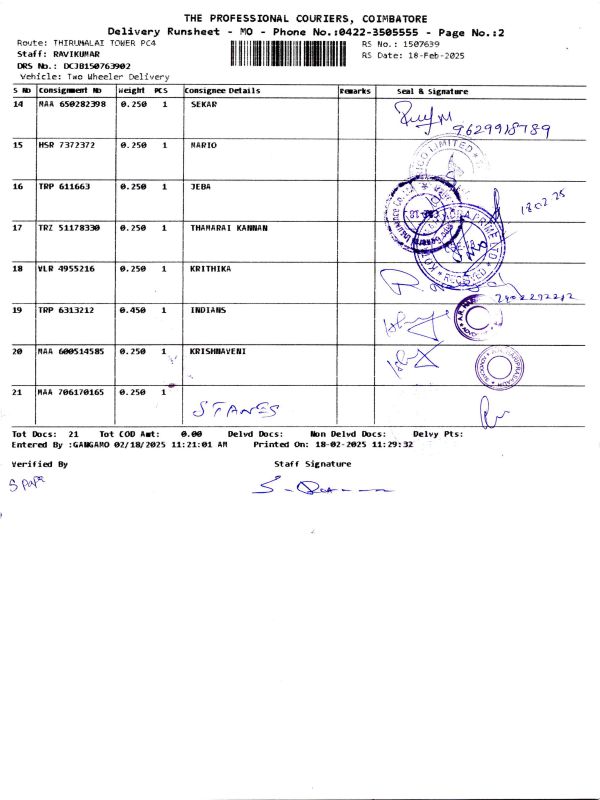 THE PROFESSIONAL COURIERS, COIMBATORE
Delivery Runsheet - MO - Phone No.:0422-3505555 - Page No.:2
Route: THIRUMALAI TOWER PC4 RS No.: 1507639
Staff: RAVIKUMAR RS Date: 18-Feb-2025
DRS No.: DCJB150763902
Vehicle: Two Wheeler Delivery
S No Consignment No Weight PCS Consignee Details Remarks Seal & Signature
14 MAA 650282398 0.250 1 SEKAR
9629918789
15 HSR 7372372 0.250 1 MARIO
16 TRP 611663 0.250 1 JEBA
18.02.25
17 TRZ 51178330 0.250 1 THAMARAI KANNAN
18 VLR 4955216 0.250 1 KRITHIKA
19 TRP 6313212 0.450 1 INDIANS
20 MAA 600514585 0.250 1 KRISHNAVENI
21 MAA 706170165 0.250 1
STANES
Tot Docs: 21 Tot COD Amt: 0.00 Delvd Docs: Non Delvd Docs: Delvy Pts:
Entered By :GANGAMO 02/18/2025 11:21:01 AM Printed On: 18-02-2025 11:29:32
Verified By Staff Signature